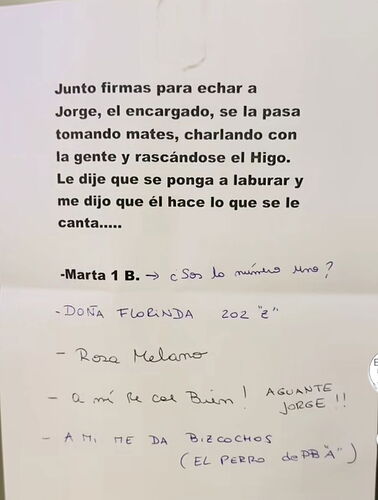 Junto firmas para echar a
Jorge, el encargado, se la pasa
tomando mates, charlando con
la gente y rascándose el Higo.
Le dije que se ponga a laburar y
me dijo que él hace lo que se le
canta.....
-Marta 1 B. → ¿Sos la número uno?
- DOÑA FLORINDA 202 "Z"
- Rosa Melano
- a mí me cae Bien! AGUANTE
JORGE!!
- A MI ME DA BIZCOCHOS
(EL PERRO de PB "A")